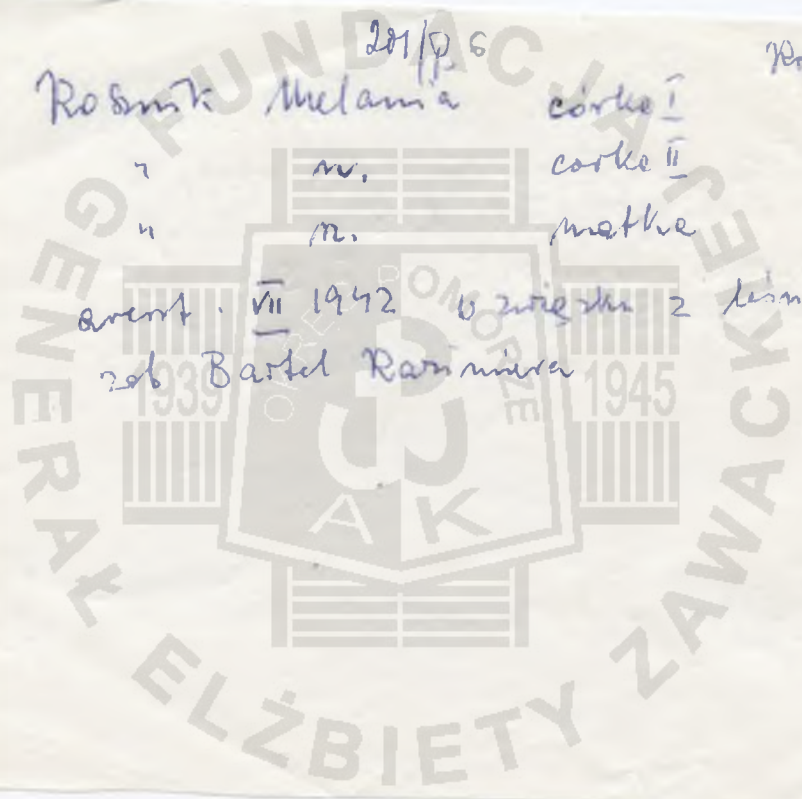 201/P. 6
Ro
Rośnik Melania córka I
" n. córka II
" n. matka
areszt. VII 1942 w związku z leśn
zob Bartel Kazimiera
FUNDACJA GENERAŁ ELŻBIETY ZAWACKIEJ
OKRĘG POMORZE
1939 1945
PW
AK